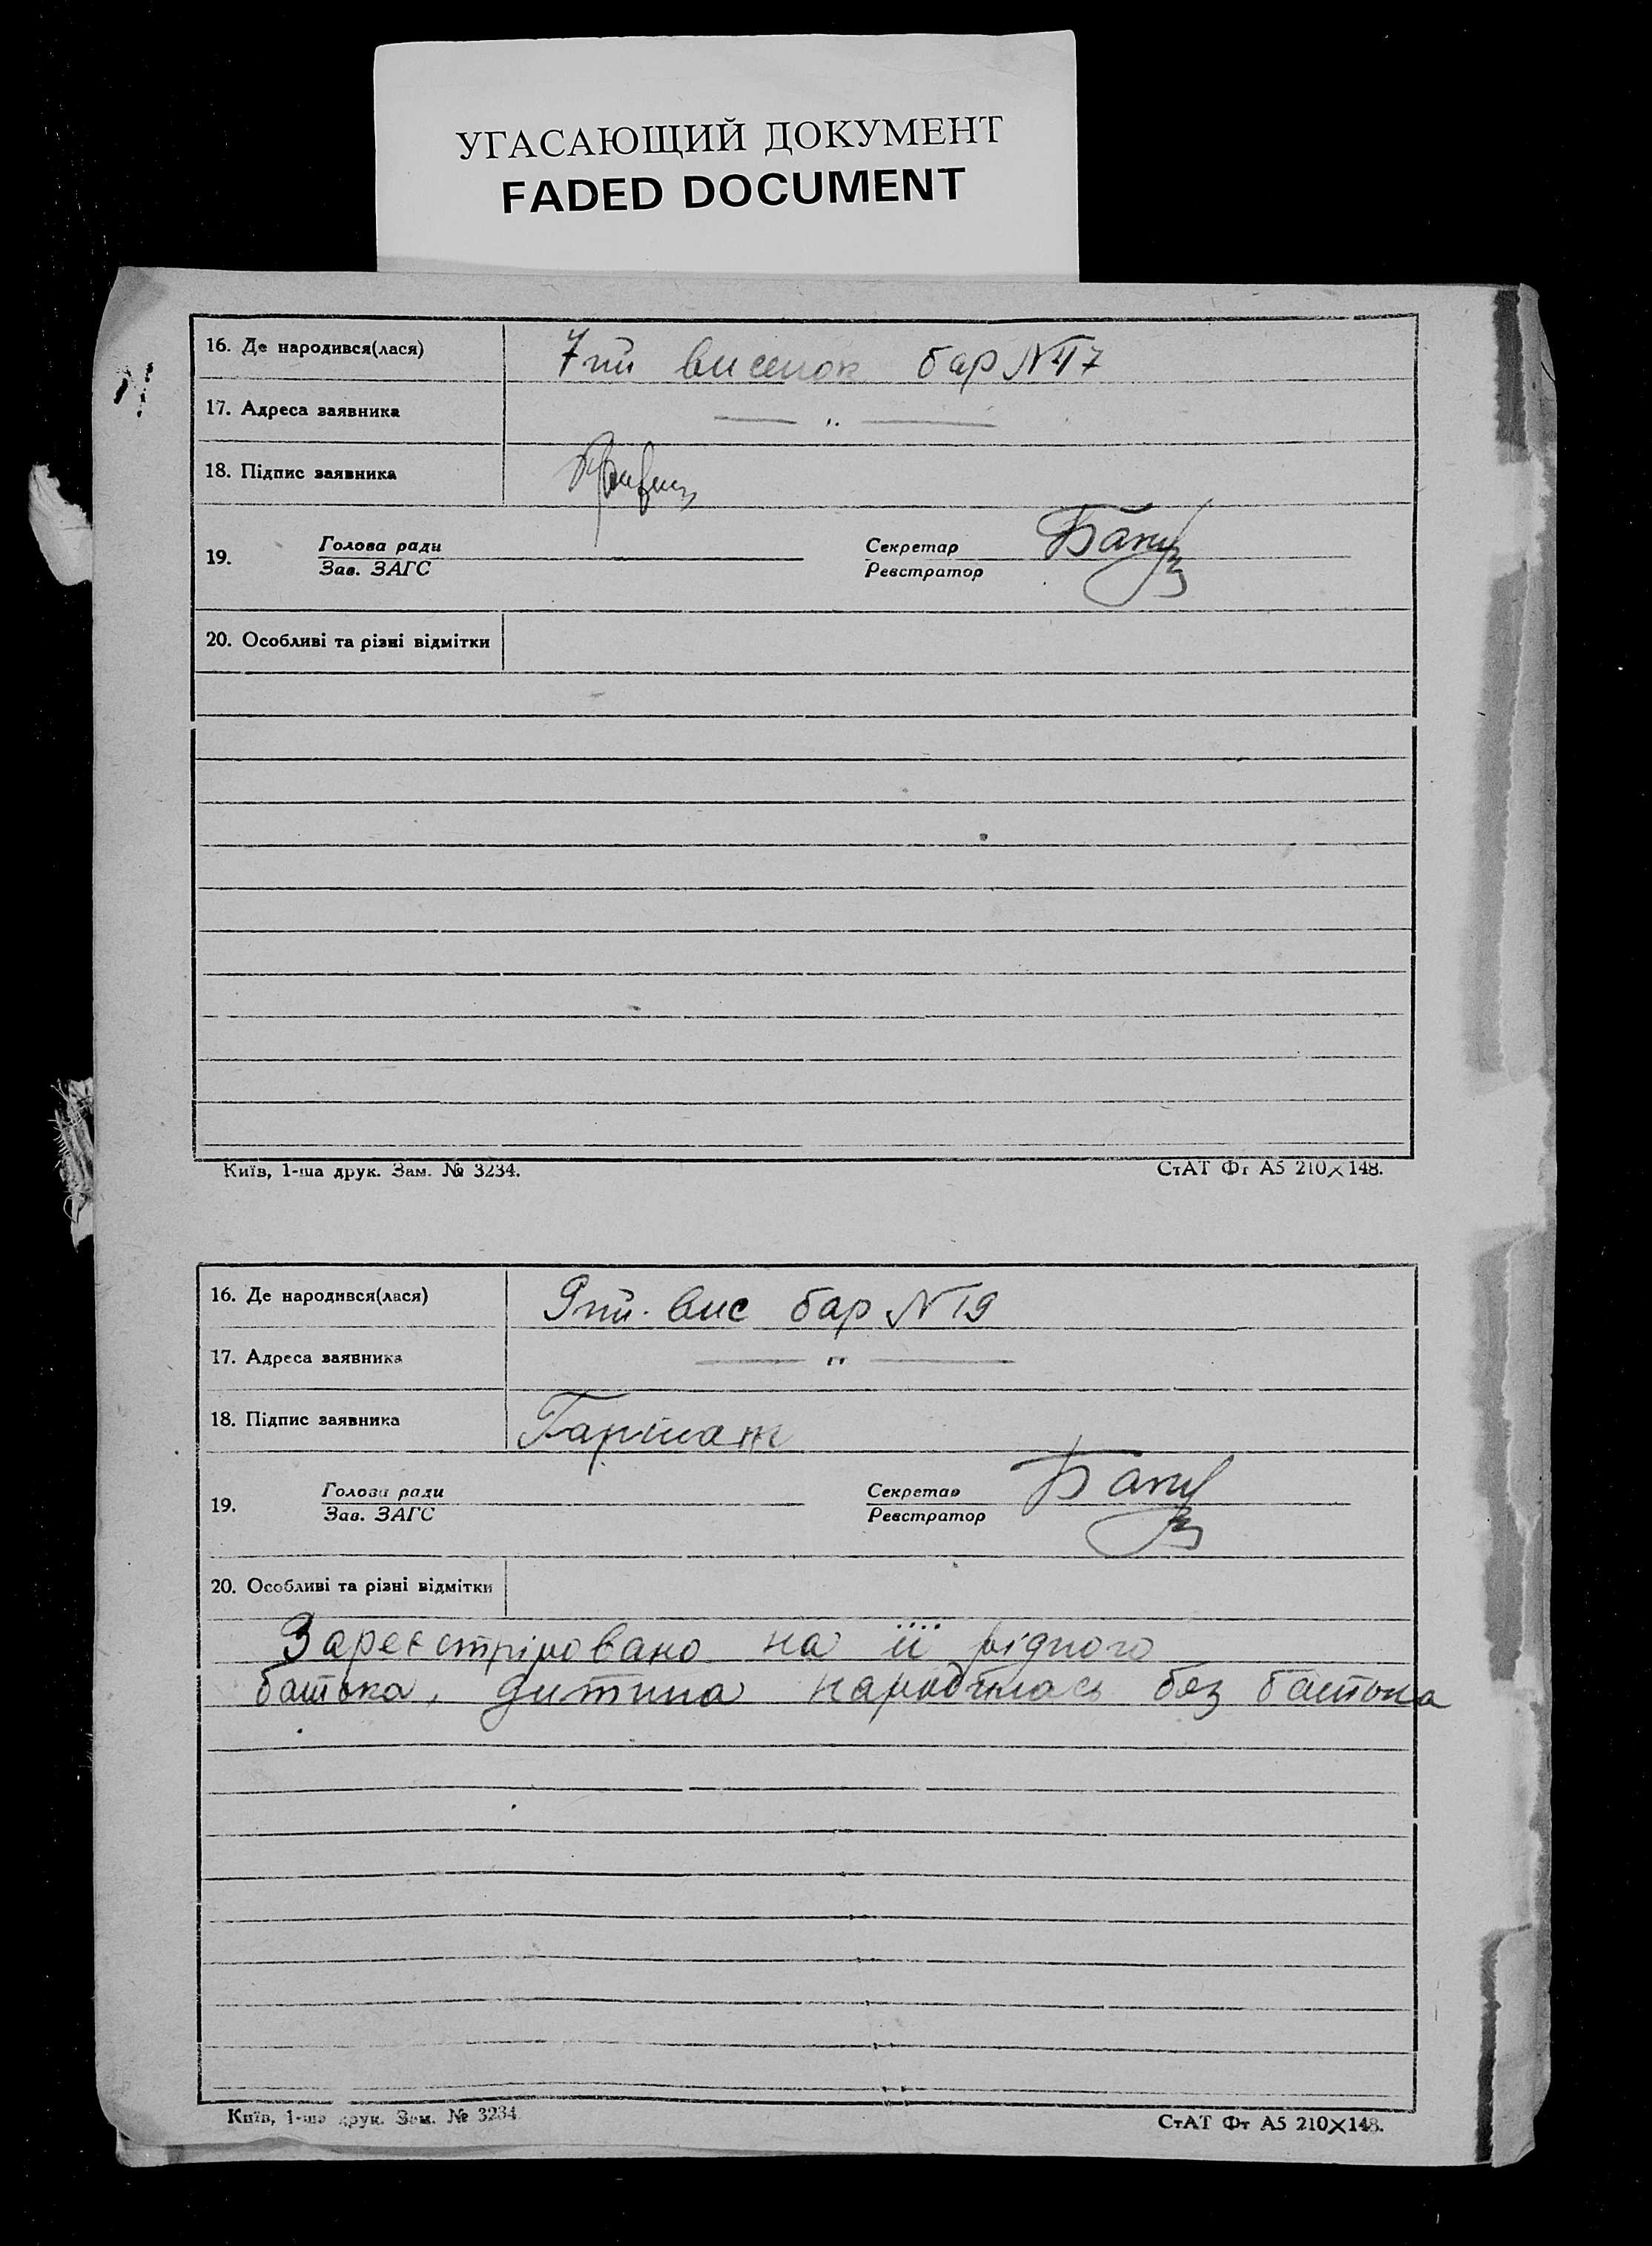 УГАСАЮЩИЙ ДОКУМЕНТ
FADED DOCUMENT
16. Де народився(лася) 7ий виселок бар №47
17. Адреса заявника — „ —
18. Підпис заявника
19. Голова ради Секретар
Зав. ЗАГС Реєстратор
20. Особливі та різні відмітки
Київ, 1-ша друк. Зам. № 3234. СтАТ Фт А5 210×148.
16. Де народився(лася) 9ти вис бар №19
17. Адреса заявника — „ —
18. Підпис заявника
19. Голова ради Секретар
Зав. ЗАГС Реєстратор
20. Особливі та різні відмітки
Зареєстріровано на її рідного
батька, дитина народилась без батька
Київ, 1-ша друк. Зам. № 3234 СтАТ Фт А5 210×148.